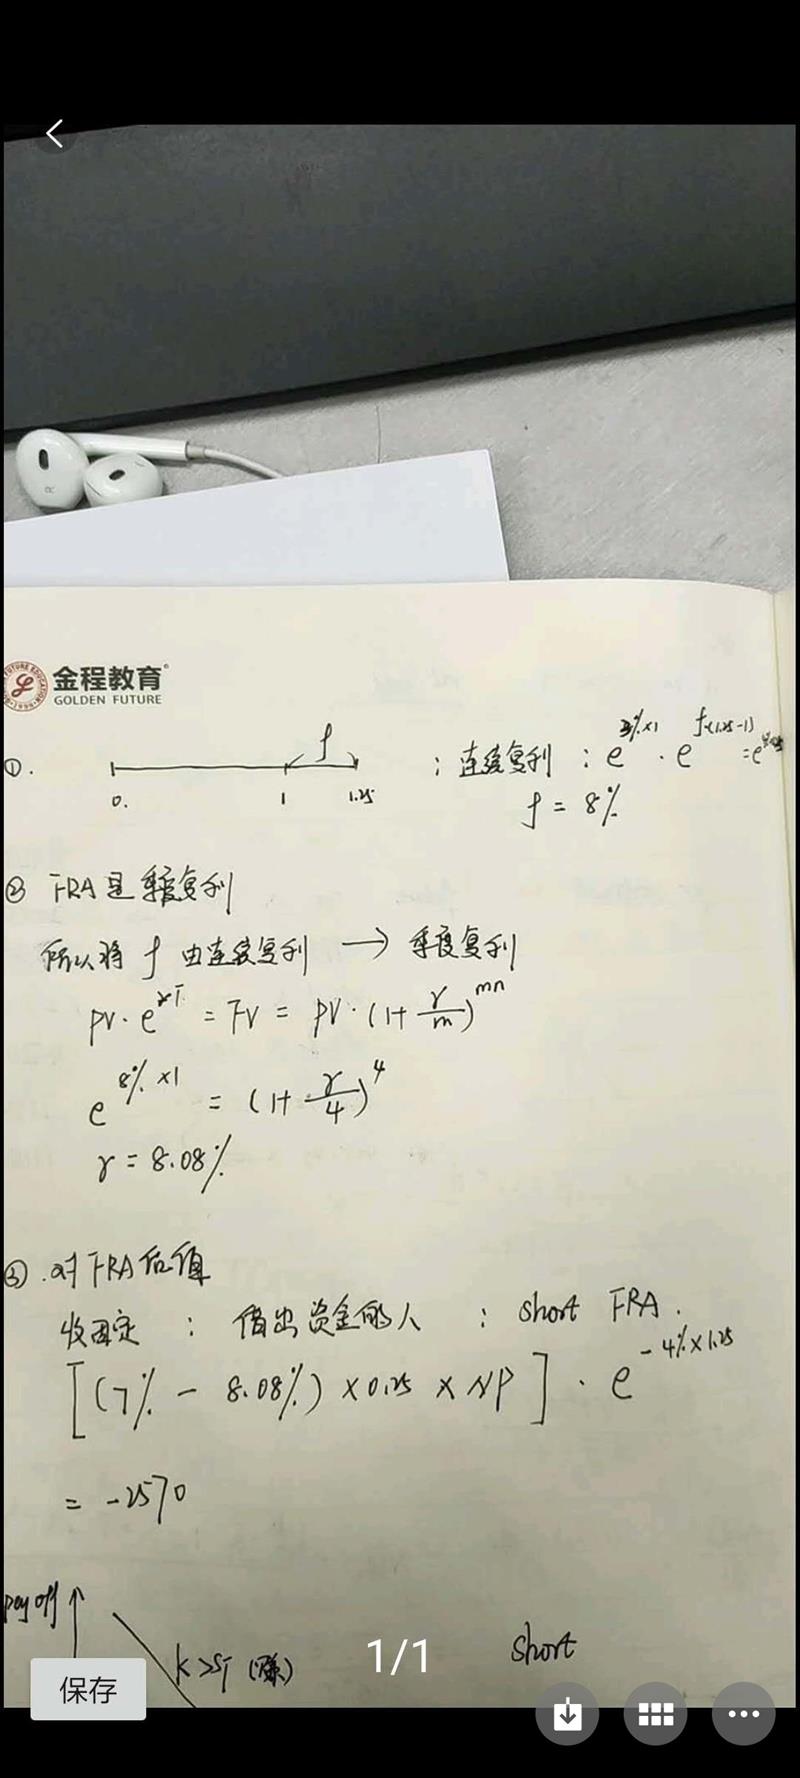 金程教育
GOLDEN FUTURE
①. 0. 1 1.25 f ; 连续复利 : e^{3%×1} · e^{f·(1.25-1)} = e
f = 8%
② FRA是季度复利
所以将 f 由连续复利 → 季度复利
PV · e^{rT} = FV = PV · (1+ r/m)^{mn}
e^{8%×1} = (1+ r/4)^4
r = 8.08%
③ .对FRA估值
收固定 : 借出资金的人 : short FRA.
[(7% - 8.08%) × 0.25 × NP] · e^{-4%×1.25}
= -2570
pay off
K>S_T (赚) short
1/1
保存